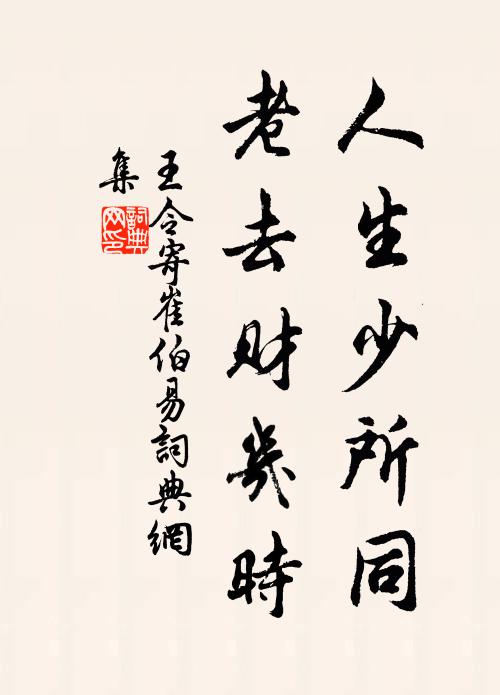 人生少所同
老去財幾時
王令寄崔伯易詞典網
集
詞典
网印